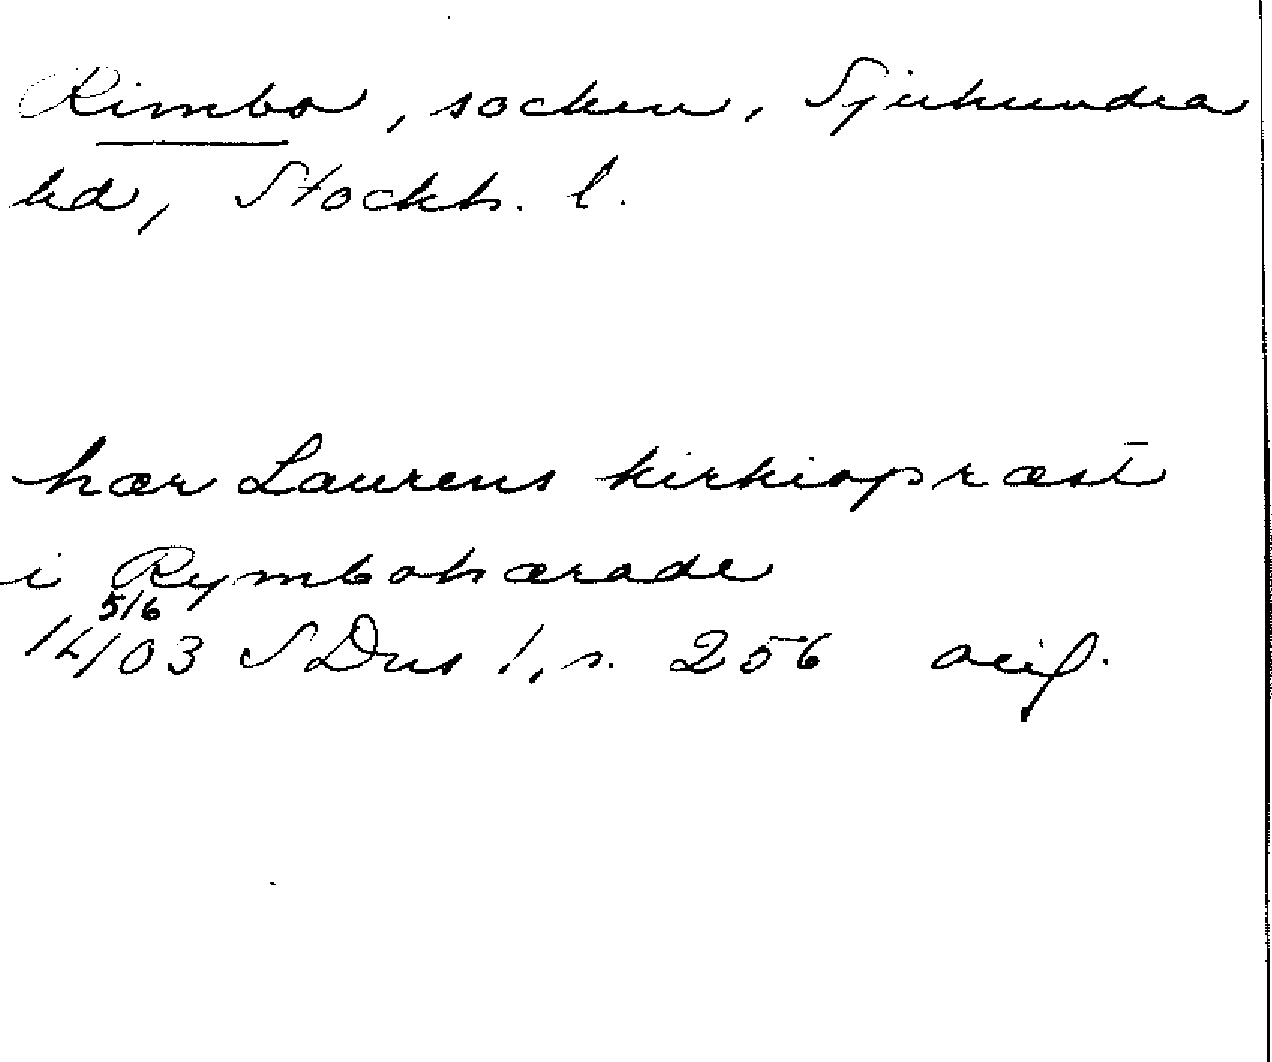 Rimbo, socken, Sjuhundra
hd, Stockh. l.
hær Laurens kirkiopræst
i Rymbohærade
5/6
1403 SDns 1, s. 256 avif.